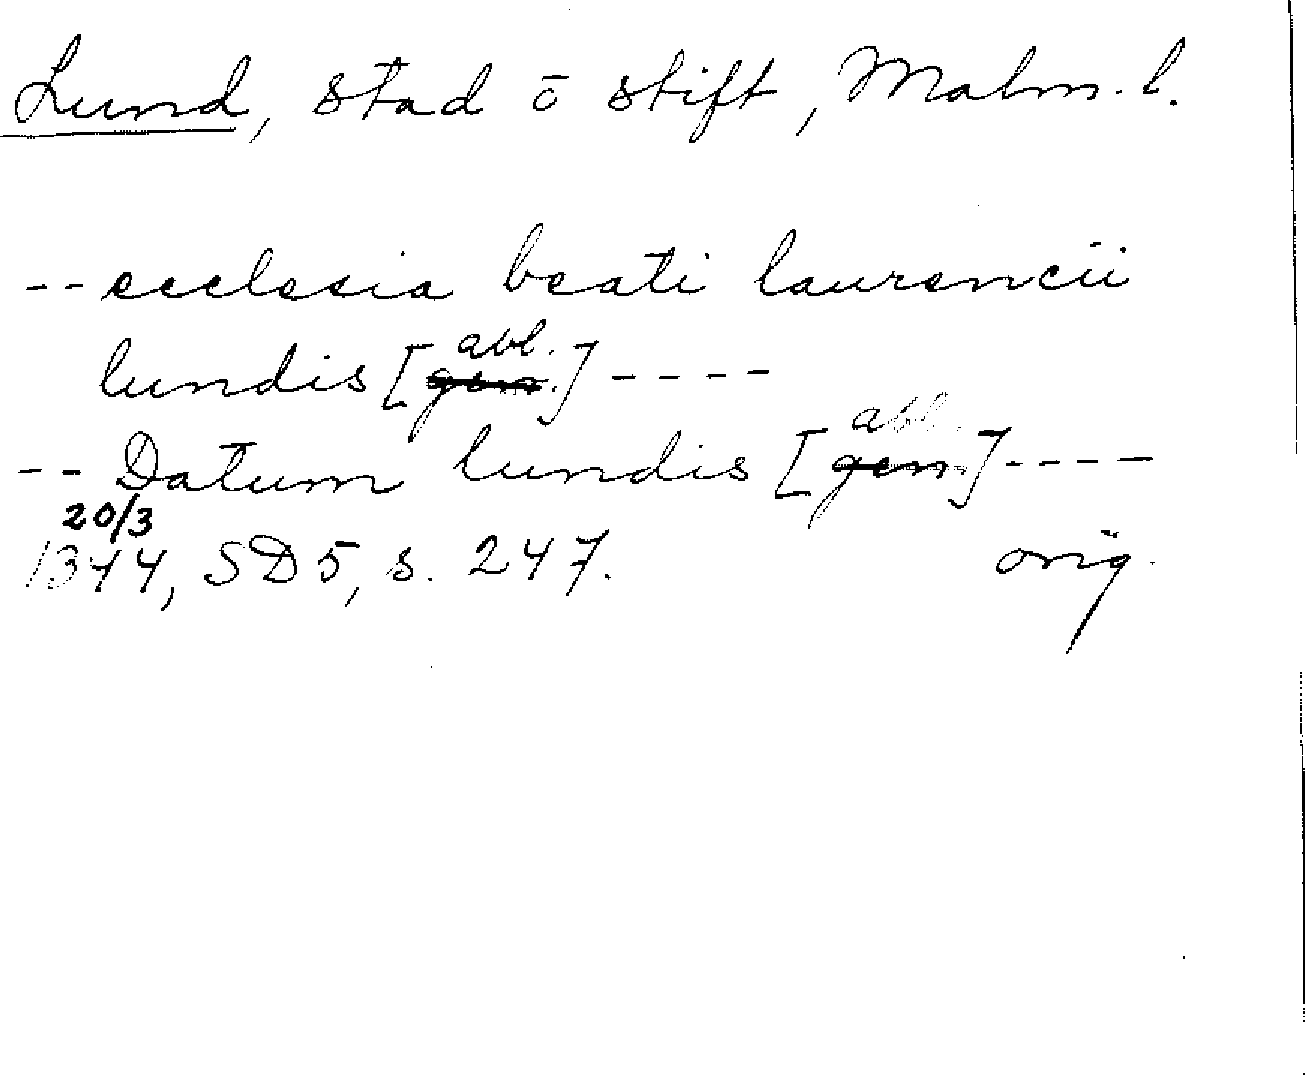 Lund, stad o stift, Malm. l.
-- ecclesia beati laurencii
abl.
lundis [gen.] ----
abl.
-- Datum lundis [gen.] ----
20/3
1344, SD5, s. 247. orig.